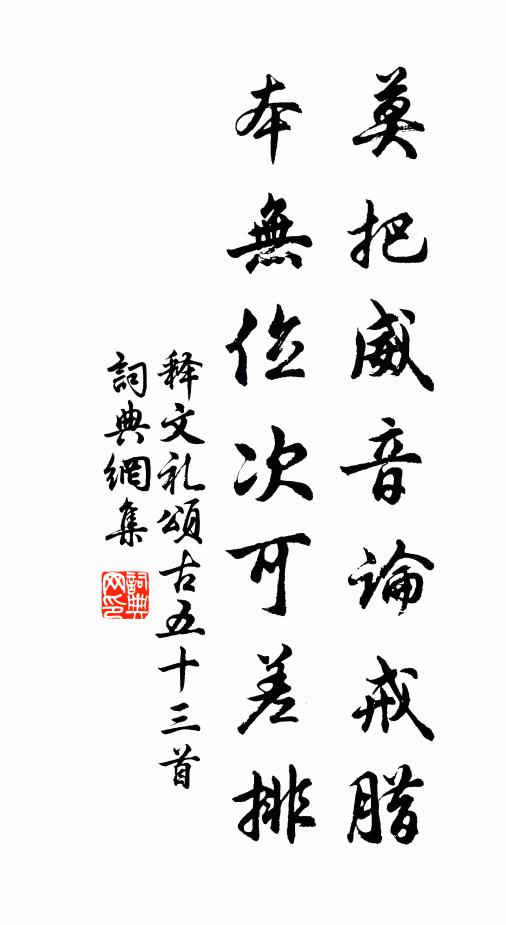 莫把威音論戒腊
本無位次可差排
释文礼頌古五十三首
詞典網集
詞典
网印